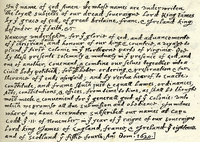 In yᵉ name of god Amen. We whose names are underwriten,
the loyall subjects of our dread soveraigne Lord King James
by yᵉ grace of god, of great Britaine, franc, & Ireland king,
defender of yᵉ faith, &c.
Haveing undertaken, for yᵉ glorie of god, and advancements
of yᵉ christian and honour of our king & countrie, a voyage to
plant yᵉ first colonie in yᵉ Northerne parts of Virginia. Doe
by these presents solemnly & mutualy in yᵉ presence of god, and
one of another, covenant, & combine our selves togeather into a
Civill body politick; for
and by vertue hearof to enacte,
constitute, and frame such just & equall lawes, ordinances,
Acts, constitutions, & offices, from time to time, as shall be thought
most meete & convenient for yᵉ generall good of yᵉ colonie: unto
which we promise all due submission and obedience. In witnes
wherof we have hereunder subscribed our names at Cape
Codd yᵉ ·11· of November, in yᵉ year of yᵉ raigne of our soveraigne
Lord king James of England, france, & Ireland yᵉ eighteenth
and of Scotland yᵉ fiftie fourth. Ano: Dom. 1620.